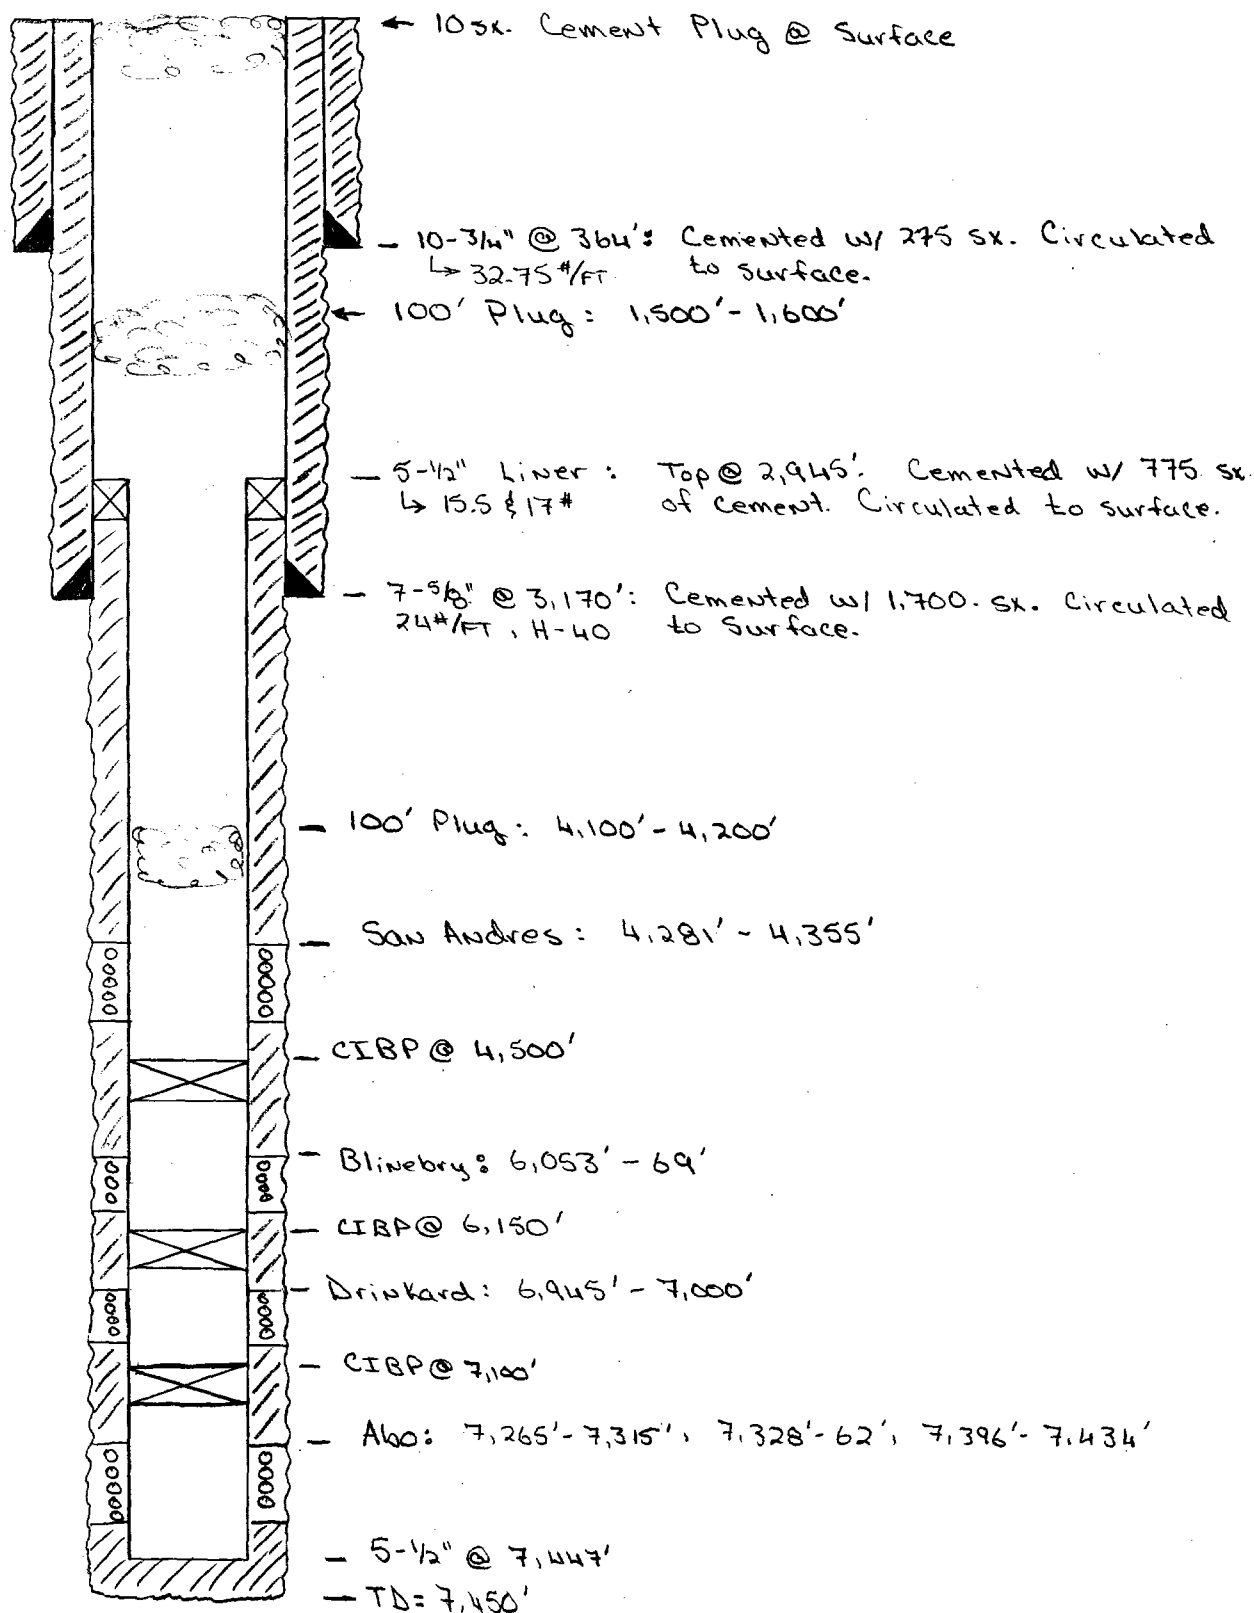 ← 10 sx. Cement Plug @ Surface
– 10-3/4" @ 364': Cemented w/ 275 sx. Circulated
↳ 32.75 #/FT. to surface.
← 100' Plug: 1,500' - 1,600'
– 5-1/2" Liner: Top @ 2,945'. Cemented w/ 775 sx.
↳ 15.5 & 17# of cement. Circulated to surface.
– 7-5/8" @ 3,170': Cemented w/ 1,700 sx. Circulated
24#/FT, H-40 to surface.
– 100' Plug: 4,100' - 4,200'
– San Andres: 4,281' - 4,355'
– CIBP @ 4,500'
– Blinebry: 6,053' - 69'
– CIBP @ 6,150'
– Drinkard: 6,945' - 7,000'
– CIBP @ 7,100'
– Abo: 7,265' - 7,315', 7,328' - 62', 7,396' - 7,434'
– 5-1/2" @ 7,447'
– TD = 7,450'